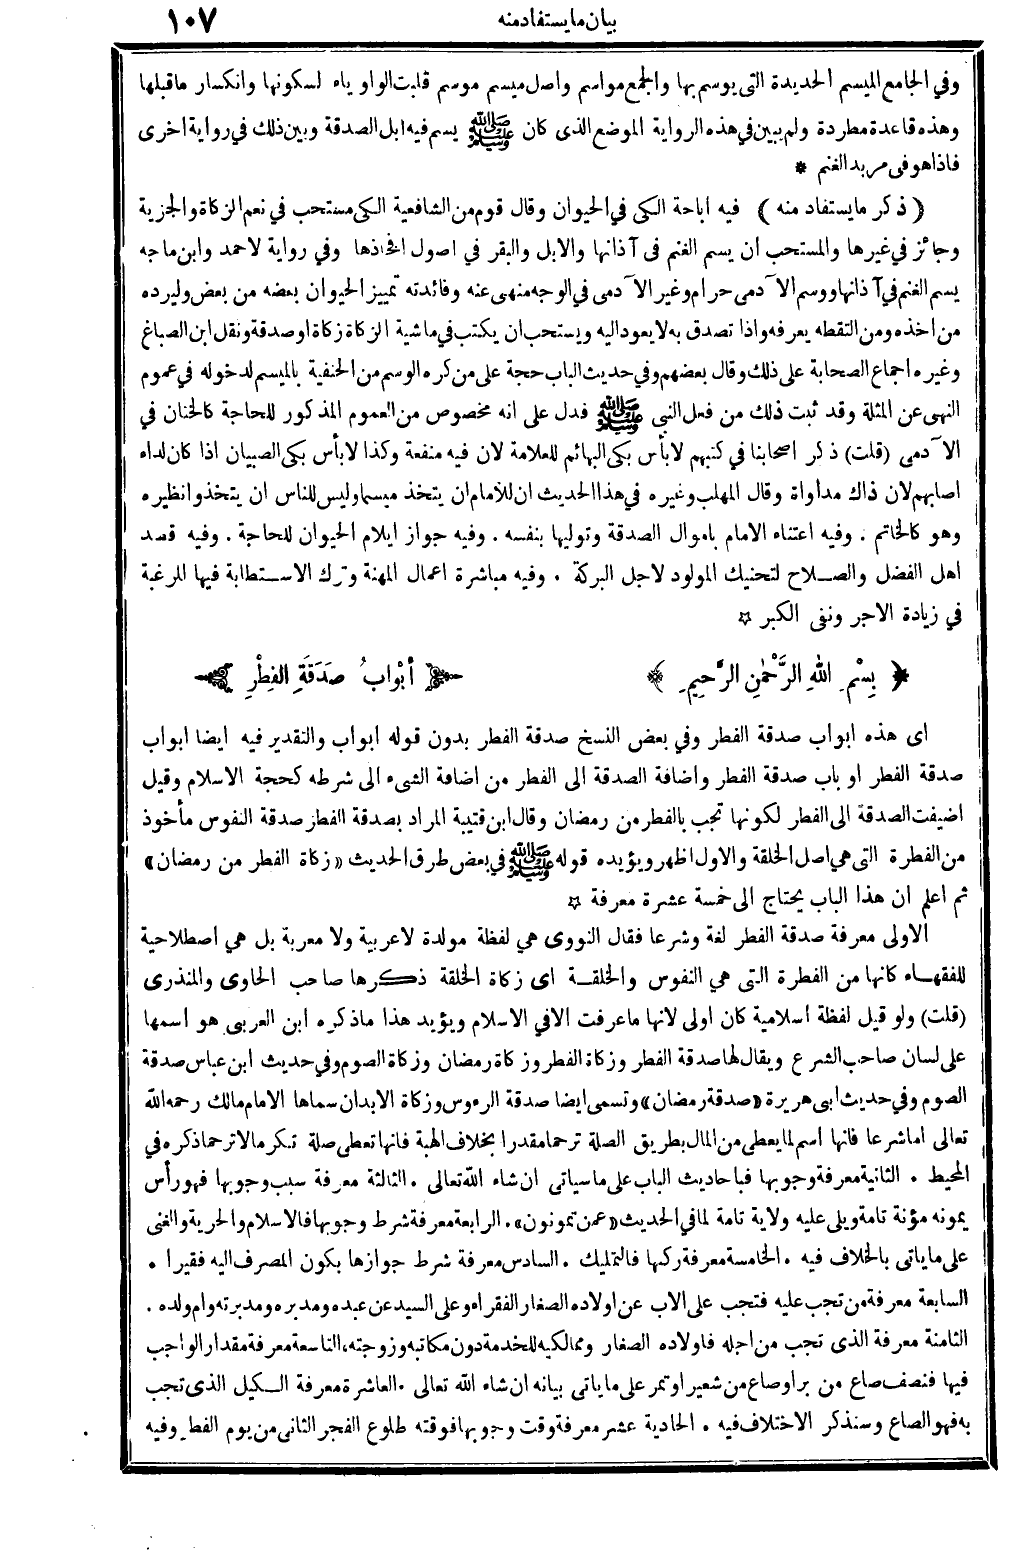 بيان ما يستفاد منه ١٠٧
وفي الجامع الميسم الحديدة التى يوسم بها والجمع مواسم واصل ميسم موسم قلبت الواو ياء لسكونها وانكسار ماقبلها
وهذه قاعدة مطردة ولم يبين في هذه الرواية الموضع الذى كان ﷺ يسم فيه ابل الصدقة وبين ذلك في رواية اخرى
فاذا هو فى مربد الغنم *
( ذكر ما يستفاد منه ) فيه اباحة الكى في الحيوان وقال قوم من الشافعية الكى مستحب في نعم الزكاة والجزية
وجائز في غيرها والمستحب ان يسم الغنم فى آذانها والابل والبقر في اصول افخاذها وفي رواية لاحمد وابن ماجه
يسم الغنم في آذانها ووسم الآدمى حرام وغير الآدمى في الوجه منهى عنه وفائدته تمييز الحيوان بعضه من بعض وليرده
من اخذه ومن التقطه يعرفه واذا تصدق به لا يعود اليه ويستحب ان يكتب في ماشية الزكاة زكاة او صدقة ونقل ابن الصباغ
وغيره اجماع الصحابة على ذلك وقال بعضهم وفي حديث الباب حجة على من كره الوسم من الحنفية بالميسم لدخوله في عموم
النهى عن المثلة وقد ثبت ذلك من فعل النبى ﷺ فدل على انه مخصوص من العموم المذكور للحاجة كالختان في
الآدمى (قلت) ذكر اصحابنا في كتبهم لا بأس بكى البهائم للعلامة لان فيه منفعة وكذا لا بأس بكى الصبيان اذا كان لداء
اصابهم لان ذاك مداواة وقال المهلب وغيره في هذا الحديث ان للامام ان يتخذ ميسما وليس للناس ان يتخذوا نظيره
وهو كالخاتم . وفيه اعتناء الامام باموال الصدقة وتوليها بنفسه . وفيه جواز ايلام الحيوان للحاجة . وفيه قصد
اهل الفضل والصــلاح لتحنيك المولود لاجل البركة . وفيه مباشرة اعمال المهنة وترك الاســتطابة فيها للرغبة
في زيادة الاجر ونفى الكبر ☆
﴿ بِسْمِ اللهِ الرَّحْمٰنِ الرَّحِيمِ ﴾ أَبْوَابُ صَدَقَةِ الفِطْرِ
اى هذه ابواب صدقة الفطر وفي بعض النسخ صدقة الفطر بدون قوله ابواب والتقدير فيه ايضا ابواب
صدقة الفطر او باب صدقة الفطر واضافة الصدقة الى الفطر من اضافة الشىء الى شرطه كحجة الاسلام وقيل
اضيفت الصدقة الى الفطر لكونها تجب بالفطر من رمضان وقال ابن قتيبة المراد بصدقة الفطر صدقة النفوس مأخوذ
من الفطرة التى هى اصل الخلقة والاول اظهر ويؤيده قوله ﷺ في بعض طرق الحديث «زكاة الفطر من رمضان»
ثم اعلم ان هذا الباب يحتاج الى خمسة عشرة معرفة ☆
الاولى معرفة صدقة الفطر لغة وشرعا فقال النووى هي لفظة مولدة لا عربية ولا معربة بل هي اصطلاحية
للفقهــاء كانها من الفطرة التى هي النفوس والخلقــة اى زكاة الخلقة ذكــرها صاحب الحاوى والمنذرى
(قلت) ولو قيل لفظة اسلامية كان اولى لانها ما عرفت الا في الاسلام ويؤيد هذا ما ذكره ابن العربى هو اسمها
على لسان صاحب الشرع ويقال لها صدقة الفطر وزكاة الفطر وزكاة رمضان وزكاة الصوم وفي حديث ابن عباس صدقة
الصوم وفي حديث ابى هريرة «صدقة رمضان» وتسمى ايضا صدقة الرءوس وزكاة الابدان سماها الامام مالك رحمه الله
تعالى اما شرعا فانها اسم لما يعطى من المال بطريق الصلة ترحما مقدرا بخلاف الهبة فانها تعطى صلة تكرما لا ترحما ذكره في
المحيط . الثانية معرفة وجوبها فبأحاديث الباب على ما سياتى ان شاء الله تعالى . الثالثة معرفة سبب وجوبها فهو رأس
يمونه مؤنة تامة ويلى عليه ولاية تامة لما في الحديث «عمن تمونون». الرابعة معرفة شرط وجوبها فالاسلام والحرية والغنى
على ما ياتى بالخلاف فيه . الخامسة معرفة ركنها فالتمليك . السادس معرفة شرط جوازها بكون المصرف اليه فقيرا .
السابعة معرفة من تجب عليه فتجب على الاب عن اولاده الصغار الفقراء وعلى السيد عن عبده ومدبره ومدبرته وام ولده .
الثامنة معرفة الذى تجب من اجله فاولاده الصغار ومماليكه للخدمة دون مكاتبه وزوجته. التاسعة معرفة مقدار الواجب
فيها فنصف صاع من بر او صاع من شعير او تمر على ما ياتى بيانه ان شاء الله تعالى . العاشرة معرفة الــكيل الذى تجب
به فهو الصاع وسنذكر الاختلاف فيه . الحادية عشر معرفة وقت وجوبها فوقته طلوع الفجر الثانى من يوم الفطر وفيه